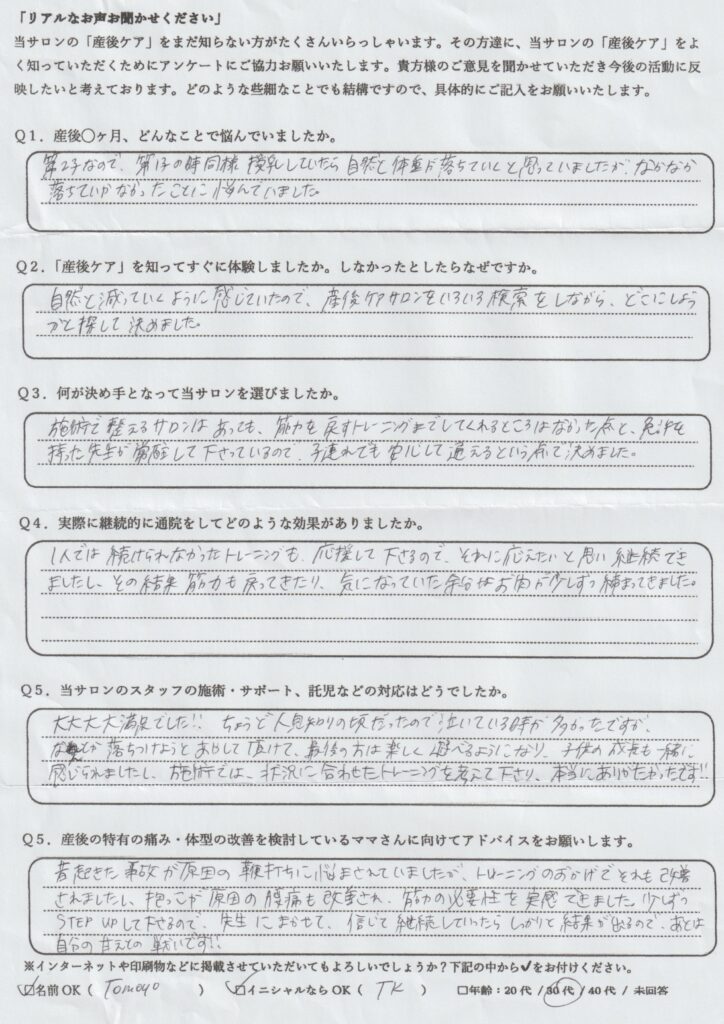 「リアルなお声お聞かせください」
当サロンの「産後ケア」をまだ知らない方がたくさんいらっしゃいます。その方達に、当サロンの「産後ケア」をよ
く知っていただくためにアンケートにご協力お願いいたします。貴方様のご意見を聞かせていただき今後の活動に反
映したいと考えております。どのような些細なことでも結構ですので、具体的にご記入をお願いいたします。
Q1．産後〇ヶ月、どんなことで悩んでいましたか。
第2子なので、第1子の時同様 授乳していたら 自然と体重が落ちていくと思っていましたが、なかなか
落ちていかなかったことに悩んでいました。
Q2．「産後ケア」を知ってすぐに体験しましたか。しなかったとしたらなぜですか。
自然と減っていくように感じていたので、産後ケアサロンをいろいろ検索をしながら、どこにしよう
かと探して決めました。
Q3．何が決め手となって当サロンを選びましたか。
施術で整えるサロンはあっても、筋力を戻すトレーニングまでしてくれるところはなかった点と、免許を
持った先生が 常駐して下さっているので、子連れでも安心して通えるという点で決めました。
Q4．実際に継続的に通院をしてどのような効果がありましたか。
1人では続けられなかったトレーニングも、応援して下さるので、それに応えたいと思い継続でき
ましたし、その結果 筋力も戻ってきたり、気になっていた余分なお肉が少しずつ締まってきました。
Q5．当サロンのスタッフの施術・サポート、託児などの対応はどうでしたか。
大大大大満足でした!! ちょうど人見知りの頃だったので泣いている時が多かったですが、
なんとか落ちつけようとあやして頂けて、最後の方は楽しく遊べるようになり、子供の成長も一緒に
感じられましたし、施術では、状況に合わせたトレーニングを考えて下さり、本当にありがたかったです!!
Q5．産後の特有の痛み・体型の改善を検討しているママさんに向けてアドバイスをお願いします。
昔起きた事故が原因の鞭打ちに悩まされていましたが、トレーニングのおかげでそれも改善
されましたし、抱っこが原因の腰痛も改善され、筋力の必要性を実感できました。少しずつ
STEP UPして下さるので、先生にまかせて、信じて継続していったらしっかりと結果が出るので、あとは
自分の甘えとの戦いです!!
※インターネットや印刷物などに掲載させていただいてもよろしいでしょうか？下記の中から✓をお付けください。
☑名前OK（ Tomoyo ） ☑イニシャルならOK（ TK ） □年齢：20代 / 30代 / 40代 / 未回答